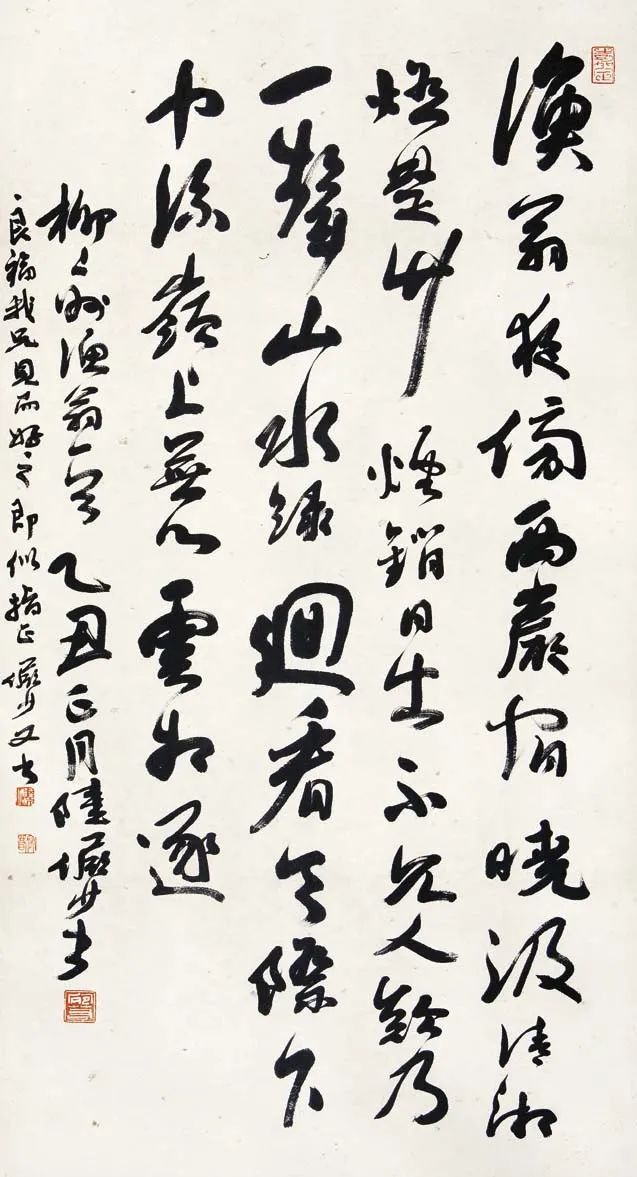 漁翁夜傍西巖宿曉汲清湘
燃楚竹煙銷日出不見人欸乃
一聲山水綠迴看天際下
中流巖上無心雲相逐
柳々州漁翁一首乙丑正月陸儼少書
良福我兄見而好之即似指正儼少又書